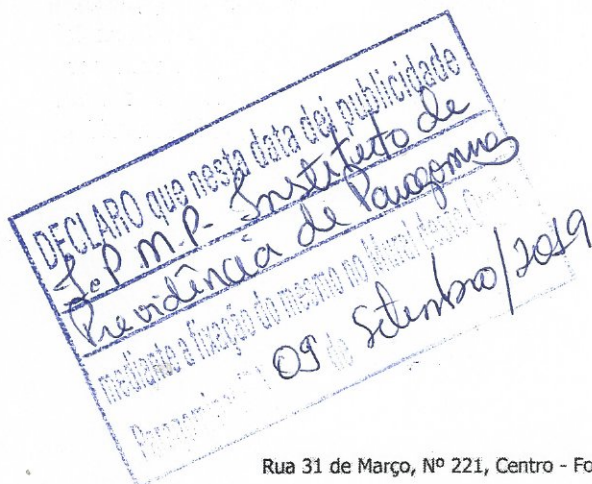 DECLARO que nesta data dei publicidade
I.P.M.P. Instituto de
Previdência de Paragominas
mediante a fixação do mesmo no Mural deste
09 de Setembro/2019
Rua 31 de Março, Nº 221, Centro - Fo